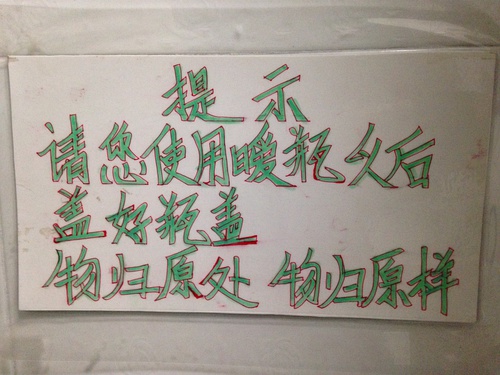 提示
请您使用暖瓶以后
盖好瓶盖
物归原处 物归原样